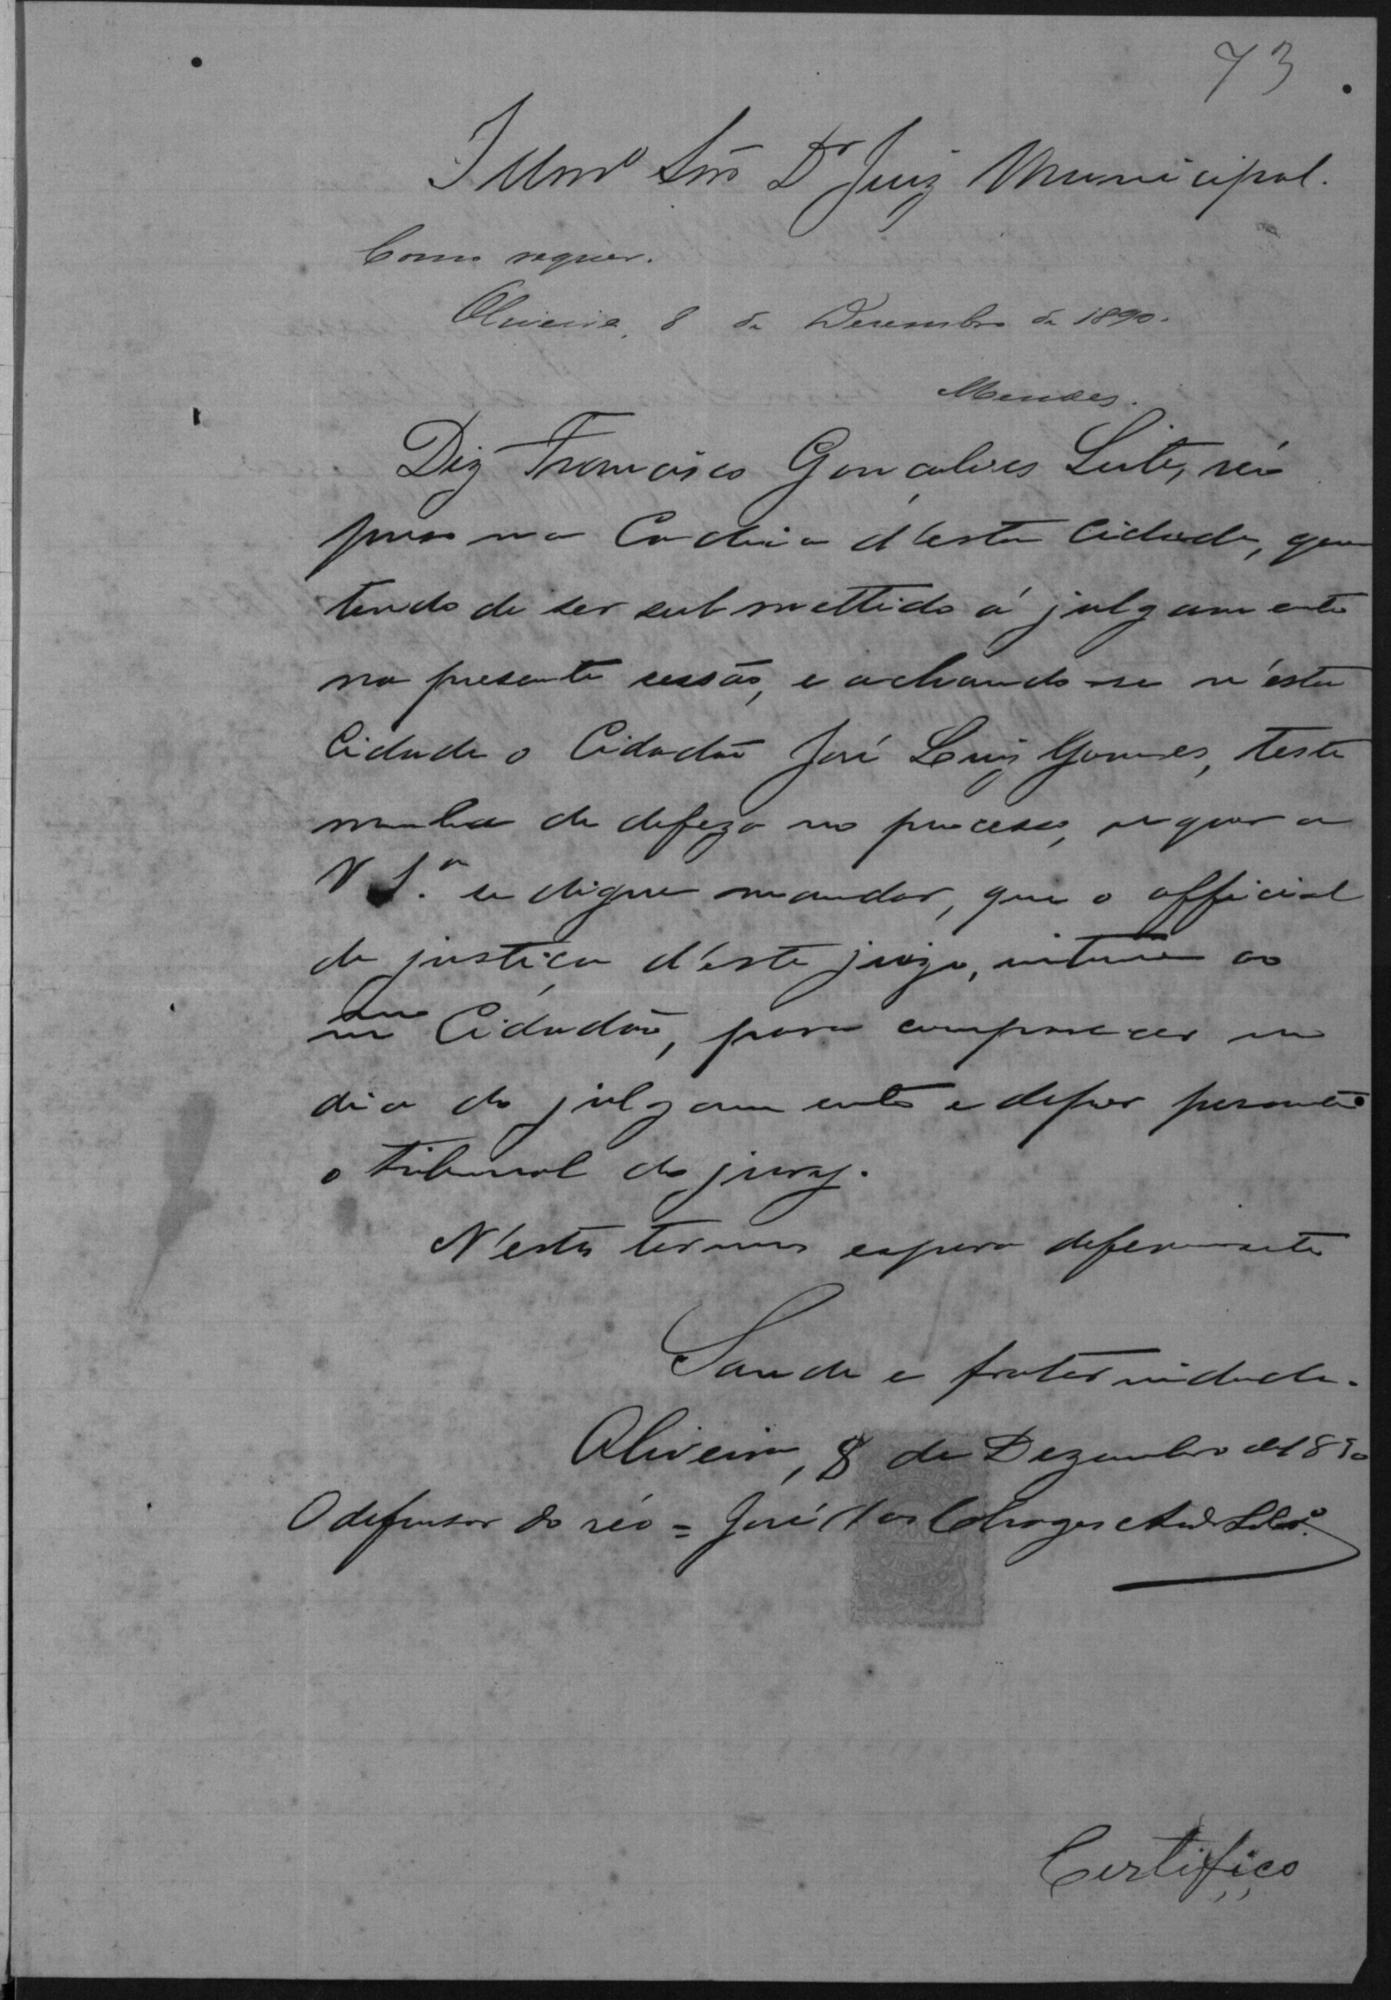 73
Illmo Snr Dr Juiz Municipal.
Como requer.
Oliveira, 8 de Dezembro de 1890.
Mendes.
Diz Francisco Gonçalves Leite, réu
preso na Cadeia d'esta Cidade, que
tendo de ser submettido á julgamento
na presente sessão, e achando-se n'esta
Cidade o Cidadão José Luiz Gomes, teste
munha de defeza no processo, requer a
V S.a se digne mandar, que o official
de justiça d'este juizo, intime ao
Cidadão, para comparecer no
dia do julgamento e depor perante
o tribunal do jury.
N'estes termos espera deferimento
Saude e fraternidade.
Oliveira, 8 de Dezembro de 1890
O defensor do réo = José das Chagas
Certifico